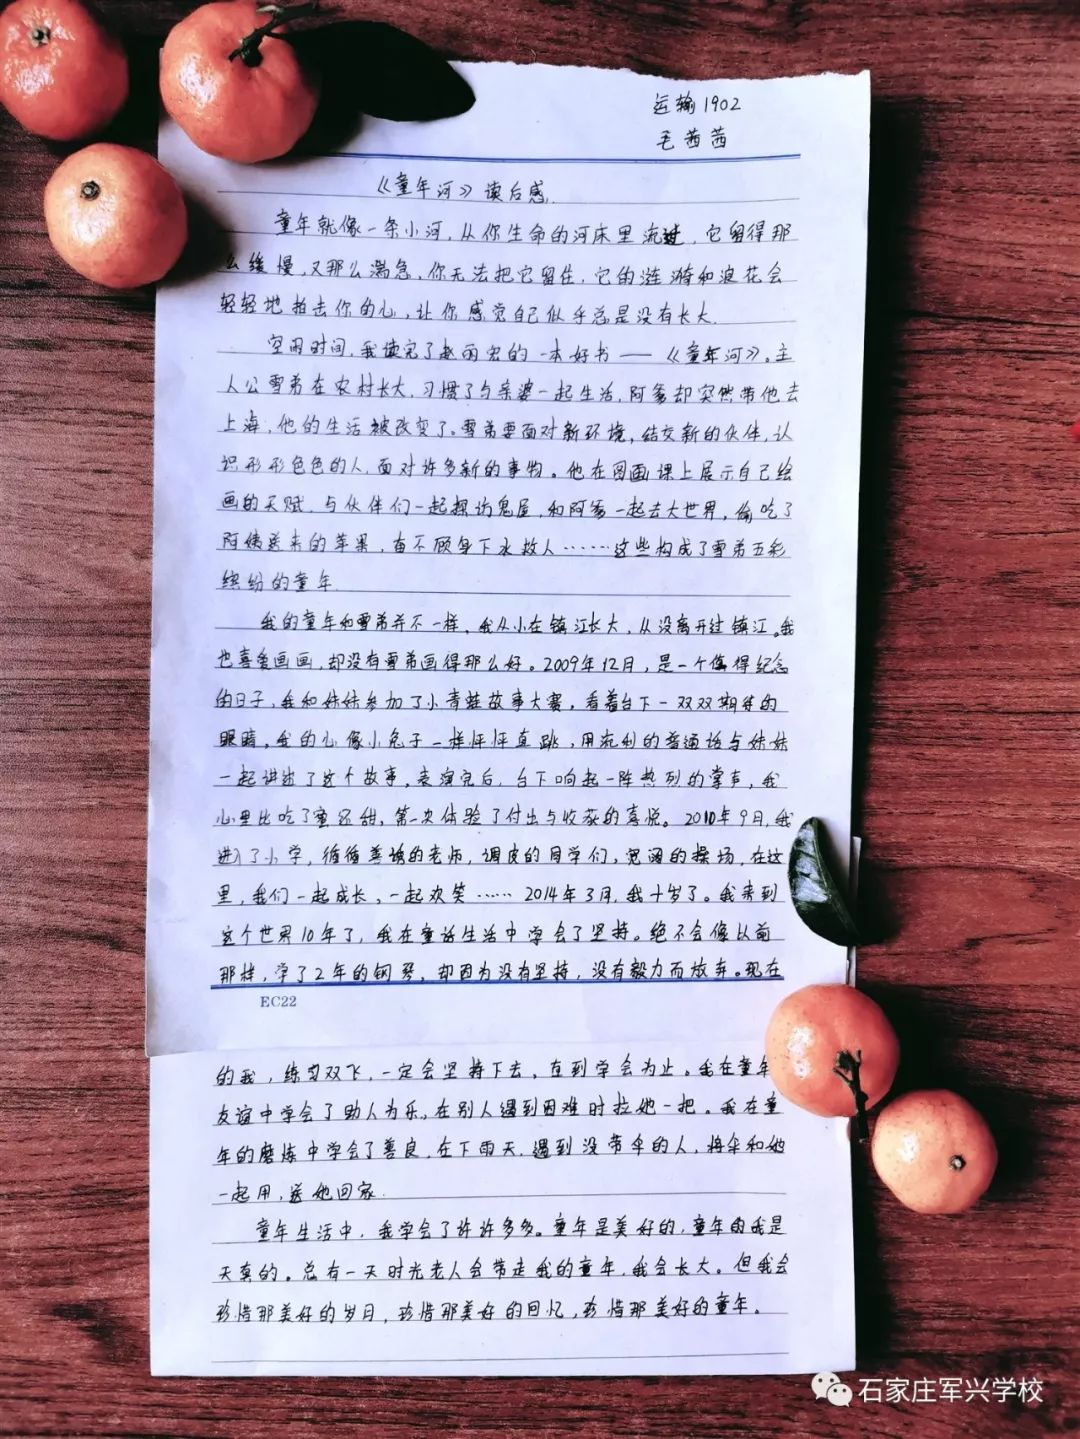 运输1902
毛茜茜
《童年河》读后感.
童年就像一条小河,从你生命的河床里流过,它留得那
么缓慢,又那么湍急,你无法把它留住,它的涟漪和浪花会
轻轻地拍击你的心,让你感觉自己似乎总是没有长大.
空闲时间,我读完了赵丽宏的一本好书——《童年河》。主
人公雪弟在农村长大,习惯了与亲婆一起生活,阿爹却突然带他去
上海,他的生活被改变了。雪弟要面对新环境,结交新的伙伴,认
识形形色色的人,面对许多新的事物。他在图画课上展示自己绘
画的天赋,与伙伴们一起探访鬼屋,和阿爹一起去大世界,偷吃了
阿姨送来的苹果,奋不顾身下水救人……这些构成了雪弟五彩
缤纷的童年.
我的童年和雪弟并不一样,我从小在镇江长大,从没离开过镇江。我
也喜爱画画,却没有雪弟画得那么好。2009年12月,是一个值得纪念
的日子,我和妹妹参加了小青蛙故事大赛,看着台下一双双期待的
眼睛,我的心像小兔子一样怦怦直跳,用流利的普通话与妹妹
一起讲述了这个故事,表演完后,台下响起一阵热烈的掌声,我
心里比吃了蜜还甜,第一次体验了付出与收获的喜悦。2010年9月,我
进入了小学,循循善诱的老师,调皮的同学们,宽阔的操场,在这
里,我们一起成长,一起欢笑…… 2014年3月,我十岁了。我来到
这个世界10年了,我在童话生活中学会了坚持。绝不会像以前
那样,学了2年的钢琴,却因为没有坚持,没有毅力而放弃。现在
EC22
的我,练习双飞,一定会坚持下去,直到学会为止。我在童年
友谊中学会了助人为乐,在别人遇到困难时拉她一把。我在童
年的磨炼中学会了善良,在下雨天,遇到没带伞的人,将伞和她
一起用,送她回家.
童年生活中,我学会了许许多多。童年是美好的,童年的我是
天真的。总有一天时光老人会带走我的童年,我会长大。但我会
珍惜那美好的岁月,珍惜那美好的回忆,珍惜那美好的童年。
石家庄军兴学校